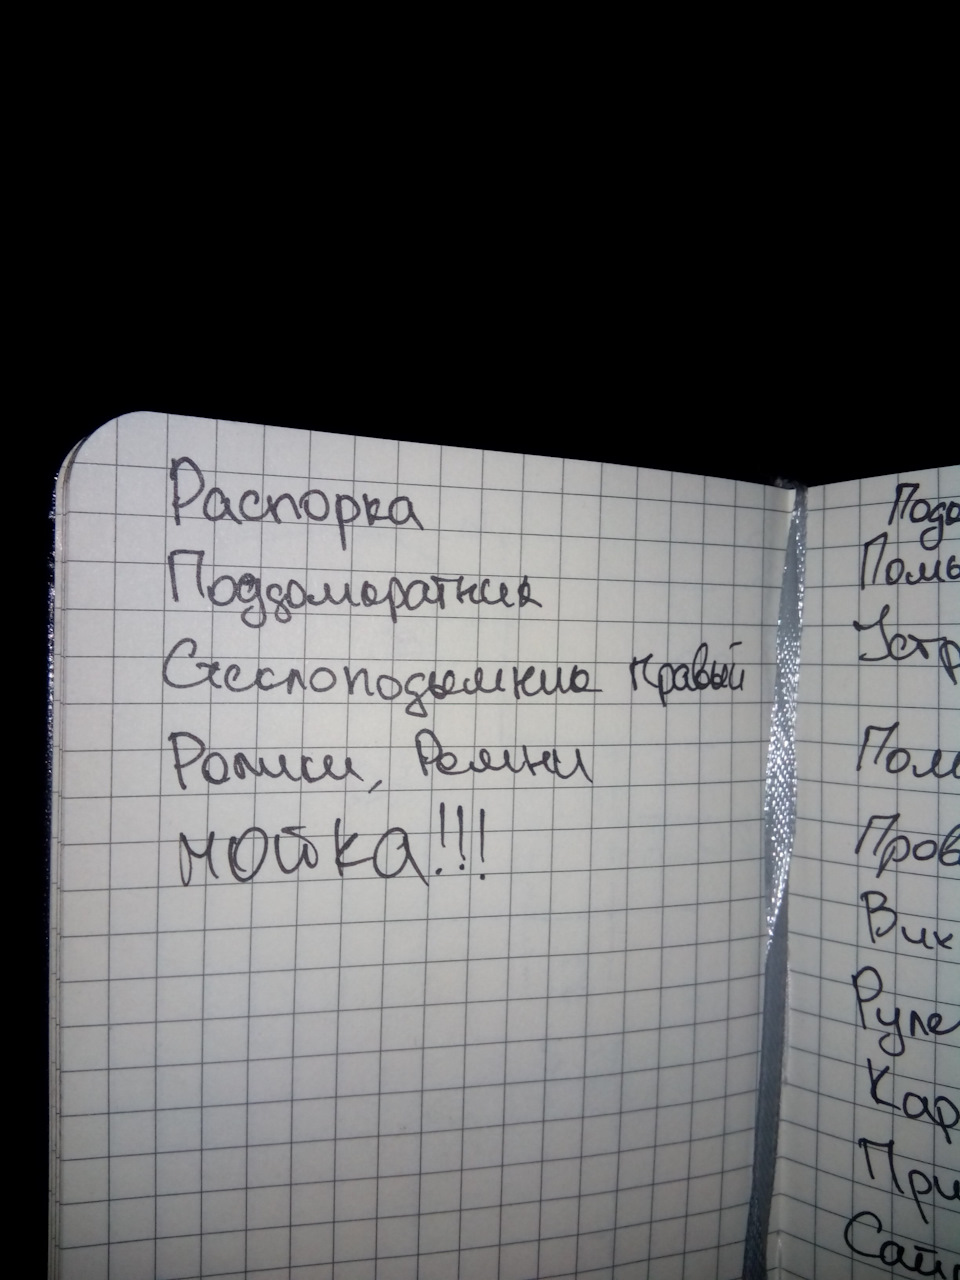 Распорка
Поддомкратник
Стеклоподъемник правый
Ролики, Ремни
мойка!!!
Подо
Помы
Устр
Пом
Пров
Вик
Руле
Кар
При
Сай